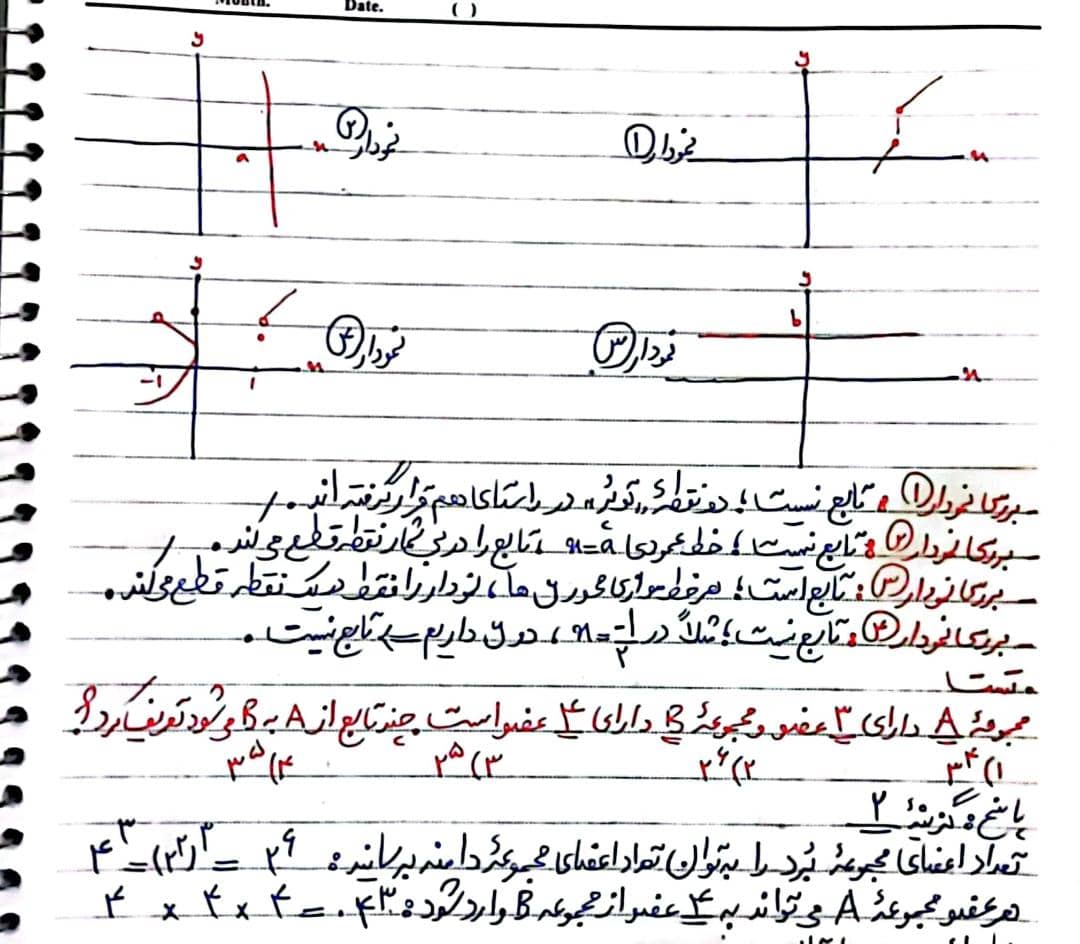 Month. Date. ( )
y y
نمودار ① x
نمودار ② x a
y y
نمودار ③ x b
نمودار ④ x ۱ -۱
ـ بررسی نمودار ①: تابع نیست؛ دو نقطهٔ „توپُر" در راستای هم قرار گرفته اند.
ـ بررسی نمودار ②: تابع نیست؛ خط عمودی x=a، تابع را در بی شمار نقطه قطع می‌کند.
ـ بررسی نمودار ③: تابع است؛ هر خط موازی محور y ها، نمودار را فقط در یک نقطه قطع می‌کند.
ـ بررسی نمودار ④: تابع نیست؛ مثلاً در x=-۱/۲، دو y داریم => تابع نیست.
• تست
مجموعهٔ A دارای ۳ عضو و مجموعهٔ B دارای ۴ عضو است. چند تابع از A به B می‌شود تعریف کرد؟
۱) ۳^۴ ۲) ۲^۶ ۳) ۲^۵ ۴) ۳^۵
پاسخ: گزینهٔ ۲
تعداد اعضای مجموعهٔ بُرد را به توان تعداد اعضای مجموعهٔ دامنه برسانید: ۴^۳=(۲^۲)^۳=۲^۶
هر عضو مجموعهٔ A می‌تواند به ۴ عضو از مجموعه B وارد شود: ۴^۳ = ۴ × ۴ × ۴